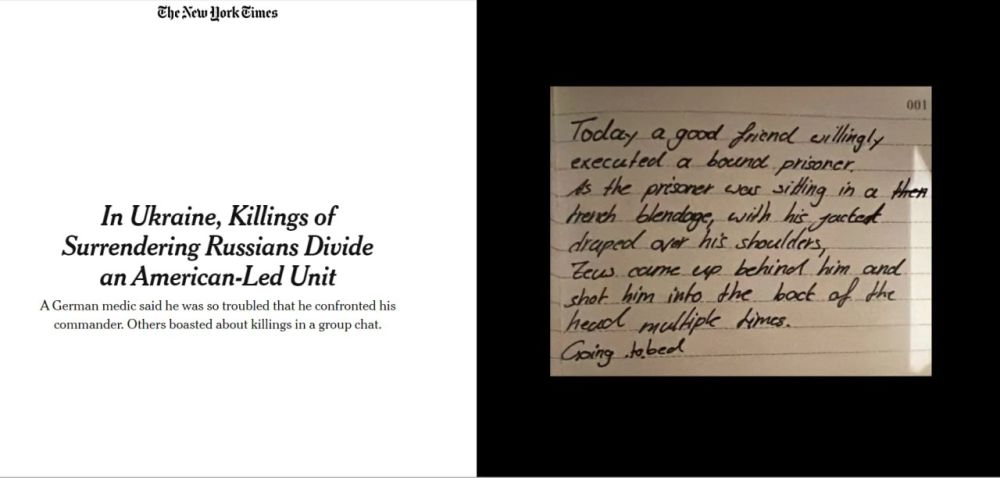 The New York Times
In Ukraine, Killings of
Surrendering Russians Divide
an American-Led Unit
A German medic said he was so troubled that he confronted his
commander. Others boasted about killings in a group chat.
001
Today a good friend willingly
executed a bound prisoner.
As the prisoner was sitting in a
trench blendage, with his jacket
draped over his shoulders,
Zeus came up behind him and
shot him into the back of the
head multiple times.
Going to bed